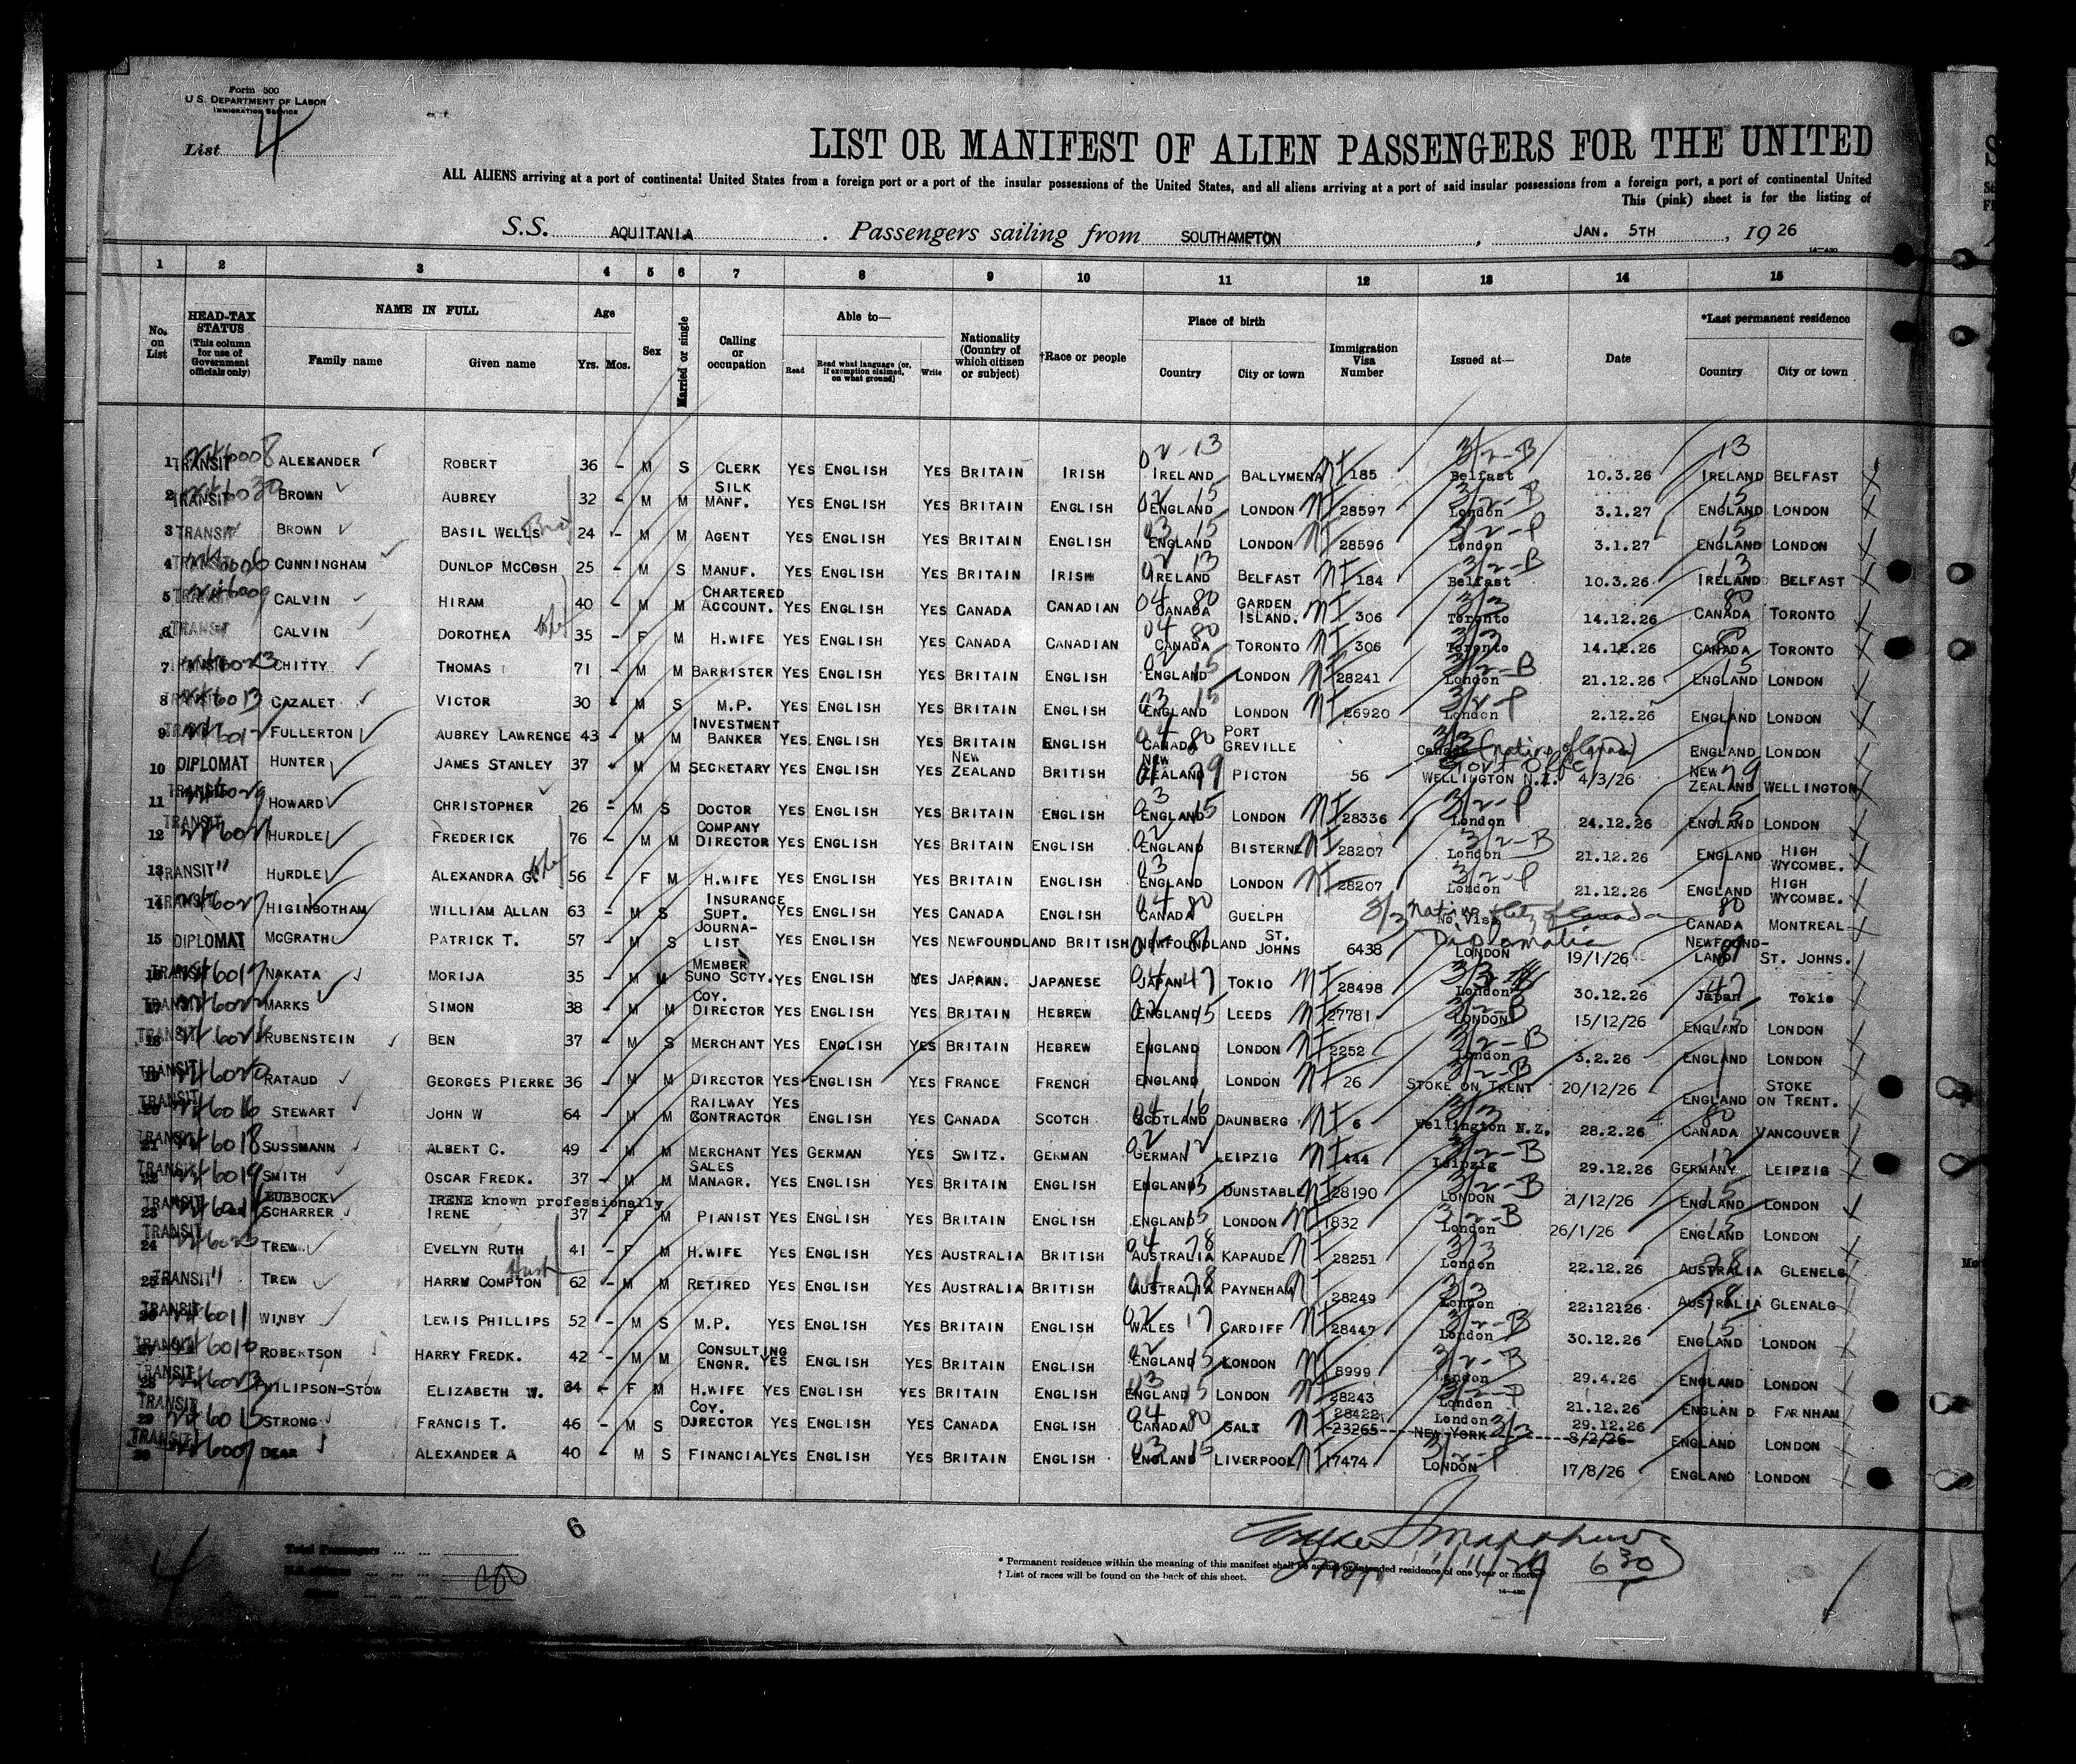 Form 500
U.S. DEPARTMENT OF LABOR
IMMIGRATION SERVICE
List 4
LIST OR MANIFEST OF ALIEN PASSENGERS FOR THE UNITED
ALL ALIENS arriving at a port of continental United States from a foreign port or a port of the insular possessions of the United States, and all aliens arriving at a port of said insular possessions from a foreign port, a port of continental United
This (pink) sheet is for the listing of
S.S. AQUITANIA . Passengers sailing from SOUTHAMPTON , JAN. 5TH , 19 26
1 2 3 4 5 6 7 8 9 10 11 12 13 14 15
No. on List
HEAD-TAX STATUS (This column for use of Government officials only)
NAME IN FULL Family name Given name
Age Yrs. Mos.
Sex
Married or single
Calling or occupation
Able to— Read Read what language (or, if exemption claimed, on what ground) Write
Nationality (Country of which citizen or subject)
†Race or people
Place of birth Country City or town
Immigration Visa Number
Issued at—
Date
*Last permanent residence Country City or town
1 TRANSIT ALEXANDER ROBERT 36 - M S CLERK YES ENGLISH YES BRITAIN IRISH IRELAND BALLYMENA 185 Belfast 10.3.26 IRELAND BELFAST
2 TRANSIT BROWN AUBREY 32 - M M SILK MANF. YES ENGLISH YES BRITAIN ENGLISH ENGLAND LONDON 28597 London 3.1.27 ENGLAND LONDON
3 TRANSIT BROWN BASIL WELLS 24 - M M AGENT YES ENGLISH YES BRITAIN ENGLISH ENGLAND LONDON 28596 London 3.1.27 ENGLAND LONDON
4 TRANSIT CUNNINGHAM DUNLOP MCCOSH 25 - M S MANUF. YES ENGLISH YES BRITAIN IRISH IRELAND BELFAST 184 Belfast 10.3.26 IRELAND BELFAST
5 TRANSIT CALVIN HIRAM 40 - M M CHARTERED ACCOUNT. YES ENGLISH YES CANADA CANADIAN CANADA GARDEN ISLAND. 306 Toronto 14.12.26 CANADA TORONTO
6 TRANSIT CALVIN DOROTHEA 35 - F M H.WIFE YES ENGLISH YES CANADA CANADIAN CANADA TORONTO 306 Toronto 14.12.26 CANADA TORONTO
7 TRANSIT CHITTY THOMAS 71 - M M BARRISTER YES ENGLISH YES BRITAIN ENGLISH ENGLAND LONDON 28241 London 21.12.26 ENGLAND LONDON
8 TRANSIT CAZALET VICTOR 30 - M S M.P. YES ENGLISH YES BRITAIN ENGLISH ENGLAND LONDON 26920 London 2.12.26 ENGLAND LONDON
9 TRANSIT FULLERTON AUBREY LAWRENCE 43 - M M INVESTMENT BANKER YES. ENGLISH YES BRITAIN ENGLISH CANADA PORT GREVILLE Canada (native of Canada) ENGLAND LONDON
10 DIPLOMAT HUNTER JAMES STANLEY 37 - M M SECRETARY YES ENGLISH YES NEW ZEALAND BRITISH NEW ZEALAND PICTON 56 WELLINGTON N.Z. 4/3/26 NEW ZEALAND WELLINGTON
11 TRANSIT HOWARD CHRISTOPHER 26 - M S DOCTOR YES ENGLISH YES BRITAIN ENGLISH ENGLAND LONDON 28336 London 24.12.26 ENGLAND LONDON
12 TRANSIT HURDLE FREDERICK 76 - M M COMPANY DIRECTOR YES ENGLISH YES BRITAIN ENGLISH ENGLAND BISTERNE 28207 London 21.12.26 ENGLAND HIGH WYCOMBE.
13 TRANSIT HURDLE ALEXANDRA G. 56 - F M H.WIFE YES ENGLISH YES BRITAIN ENGLISH ENGLAND LONDON 28207 London 21.12.26 ENGLAND HIGH WYCOMBE.
14 TRANSIT HIGINBOTHAM WILLIAM ALLAN 63 - M S INSURANCE SUPT. YES ENGLISH YES CANADA ENGLISH CANADA GUELPH No Visa CANADA MONTREAL
15 DIPLOMAT MCGRATH PATRICK T. 57 - M S JOURNA-LIST YES ENGLISH YES NEWFOUNDLAND BRITISH NEWFOUNDLAND ST. JOHNS 6438 Diplomatic LONDON 19/1/26 NEWFOUND-LAND ST. JOHNS.
16 TRANSIT NAKATA MORIJA 35 - M M MEMBER SUNO SCTY. YES ENGLISH YES JAPAN. JAPANESE JAPAN TOKIO 28498 London 30.12.26 Japan Tokio
17 TRANSIT MARKS SIMON 38 - M M COY. DIRECTOR YES ENGLISH YES BRITAIN HEBREW ENGLAND LEEDS 27781 LONDON 15/12/26 ENGLAND LONDON
18 TRANSIT RUBENSTEIN BEN 37 - M S MERCHANT YES ENGLISH YES BRITAIN HEBREW ENGLAND LONDON 2252 London 3.2.26 ENGLAND LONDON
19 TRANSIT RATAUD GEORGES PIERRE 36 - M M DIRECTOR YES ENGLISH YES FRANCE FRENCH ENGLAND LONDON 26 STOKE ON TRENT 20/12/26 ENGLAND STOKE ON TRENT.
20 TRANSIT STEWART JOHN W 64 - M M RAILWAY CONTRACTOR YES ENGLISH YES CANADA SCOTCH SCOTLAND DAUNBERG 6 Wellington N.Z. 28.2.26 CANADA VANCOUVER
21 TRANSIT SUSSMANN ALBERT C. 49 - M M MERCHANT YES GERMAN YES SWITZ. GERMAN GERMAN LEIPZIG 444 Leipzig 29.12.26 GERMANY LEIPZIG
22 TRANSIT SMITH OSCAR FREDK. 37 - M M SALES MANAGR. YES ENGLISH YES BRITAIN ENGLISH ENGLAND DUNSTABLE 28190 LONDON 21/12/26 ENGLAND LONDON
LUBBOCK IRENE known professionally
23 TRANSIT SCHARRER IRENE 37 - F M PIANIST YES ENGLISH YES BRITAIN ENGLISH ENGLAND LONDON 1832 London 26/1/26 ENGLAND LONDON
24 TRANSIT TREW EVELYN RUTH 41 - F M H.WIFE YES ENGLISH YES AUSTRALIA BRITISH AUSTRALIA KAPAUDE 28251 London 22.12.26 AUSTRALIA GLENELG
25 TRANSIT TREW HARRY COMPTON 62 - M M RETIRED YES ENGLISH YES AUSTRALIA BRITISH AUSTRALIA PAYNEHAM 28249 London 22:12126 AUSTRALIA GLENALG
26 TRANSIT WINBY LEWIS PHILLIPS 52 - M S M.P. YES ENGLISH YES BRITAIN ENGLISH WALES CARDIFF 28447 London 30.12.26 ENGLAND LONDON
27 TRANSIT ROBERTSON HARRY FREDK. 42 - M M CONSULTING ENGNR. YES ENGLISH YES BRITAIN ENGLISH ENGLAND LONDON 8999 London 29.4.26 ENGLAND LONDON
28 TRANSIT PHILIPSON-STOW ELIZABETH W. 34 - F M H.WIFE YES ENGLISH YES BRITAIN ENGLISH ENGLAND LONDON 28243 London 21.12.26 ENGLAND FARNHAM
29 TRANSIT STRONG FRANCIS T. 46 - M S COY. DIRECTOR YES ENGLISH YES CANADA ENGLISH CANADA GALT 28422 London 29.12.26 23265 NEW YORK 8/2/26 ENGLAND LONDON
30 TRANSIT DEAR ALEXANDER A 40 - M S FINANCIAL YES ENGLISH YES BRITAIN ENGLISH ENGLAND LIVERPOOL 17474 LONDON 17/8/26 ENGLAND LONDON
6
4
Total Passengers
* Permanent residence within the meaning of this manifest shall be actual or intended residence of one year or more.
† List of races will be found on the back of this sheet.
14—430
630